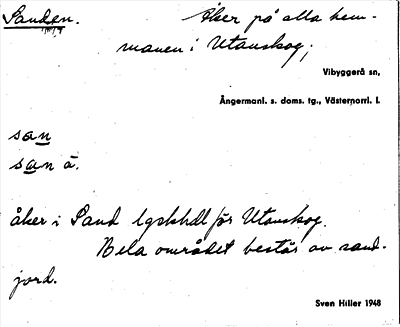 Sanden. Åker på alla hem-
manen i Utanskog;
Vibyggerå sn,
Ångermanl. s. doms. tg., Västernorrl. l.
san
san å.
åker i Sand lgskhdl för Utanskog.
Hela området består av sand-
jord.
Sven Hiller 1948